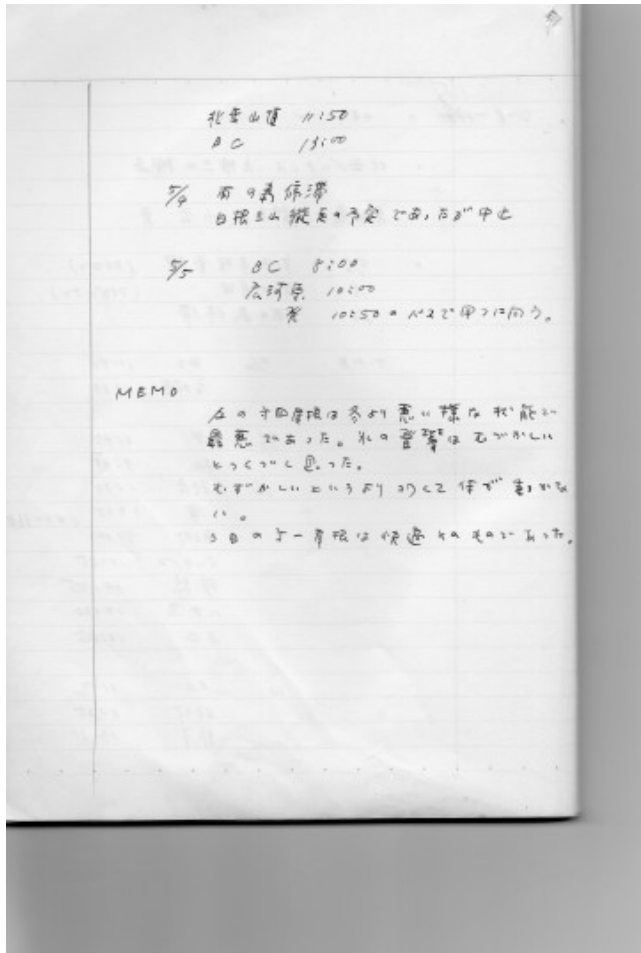 北岳山頂 11:50
BC 13:00
5/4 雨の為停滞
白根三山縦走の予定であったが中止
5/5 BC 8:00
広河原 10:00
発 10:50のバスで甲府に向う。
MEMO
の第四尾根は冬より悪い様な状態で
最悪であった。氷の登攀はむづかしい
とつくづく思った。
むずかしいというより怖くて体が動かな
い。
3日の 尾根は快適そのものであった。